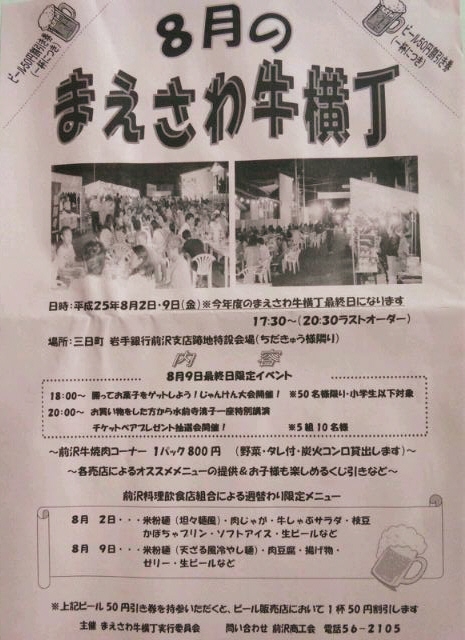 ビール50円割引き券
(一杯につき)
ビール50円割引き券
(一杯につき)
8月の
まえさわ牛横丁
日時:平成25年8月2日・9日(金)※今年度のまえさわ牛横丁最終日になります
17:30~(20:30ラストオーダー)
場所:三日町 岩手銀行前沢支店跡地特設会場(ちだきゅう様隣り)
内 容
8月9日最終日限定イベント
18:00~ 勝ってお菓子をゲットしよう!じゃんけん大会開催! ※50名様限り・小学生以下対象
20:00~ お買い物をした方から水前寺清子一座特別講演
チケットペアプレゼント抽選会開催! ※5組10名様
~前沢牛焼肉コーナー 1パック800円 (野菜・タレ付・炭火コンロ貸出します)~
~各売店によるオススメメニューの提供&お子様も楽しめるくじ引きなど~
前沢料理飲食店組合による週替わり限定メニュー
8月 2日・・・米粉麺(坦々麺風)・肉じゃが・牛しゃぶサラダ・枝豆
かぼちゃプリン・ソフトアイス・生ビールなど
8月 9日・・・米粉麺(天ざる風冷やし麺)・肉豆腐・揚げ物・
ゼリー・生ビールなど
※上記ビール50円引き券を持参いただくと、ビール販売店において1杯50円割引します
主催 まえさわ牛横丁実行委員会 問い合わせ 前沢商工会 電話56-2105